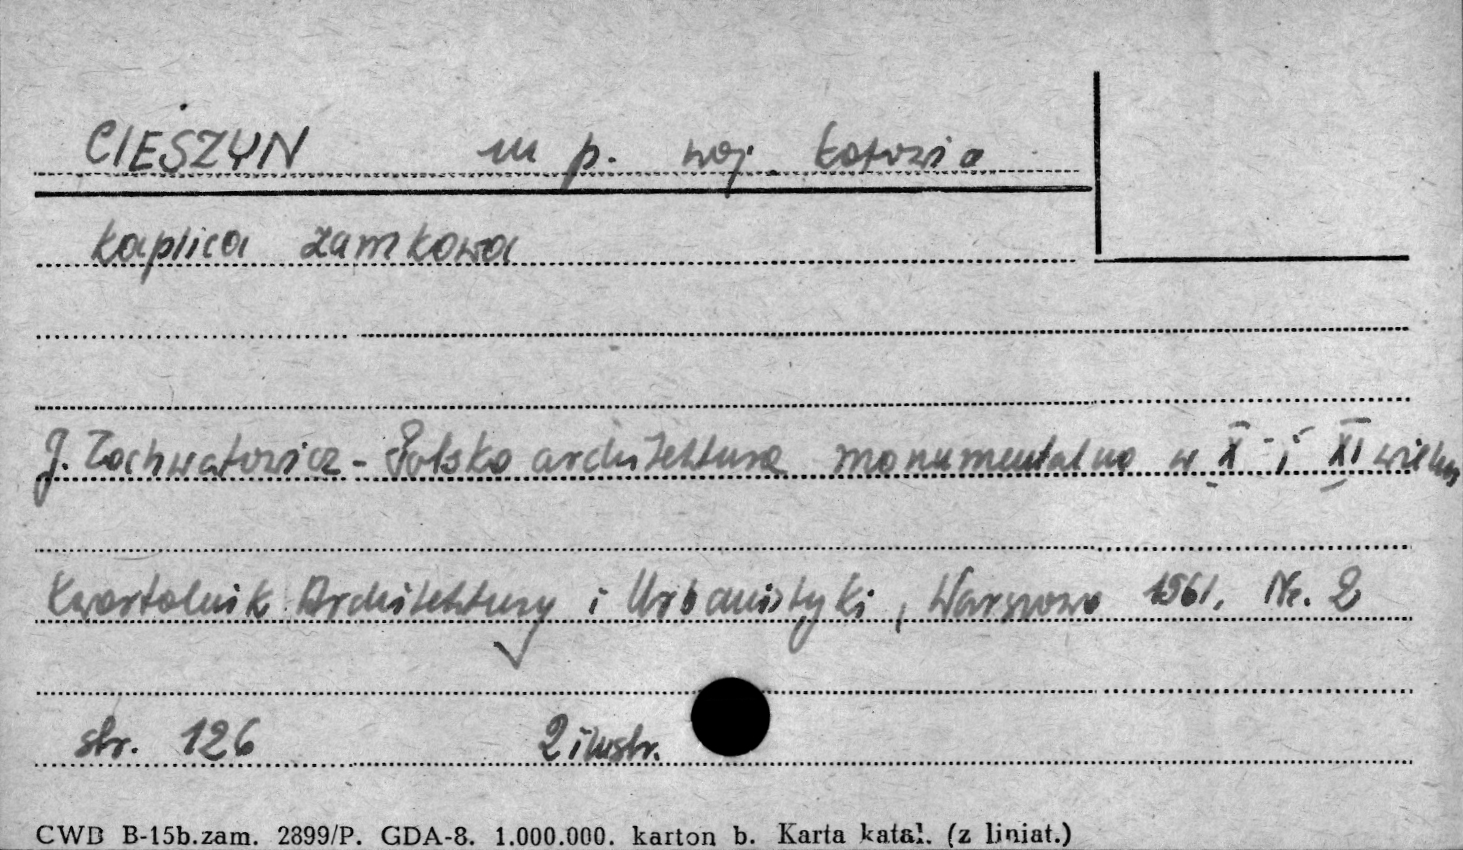 CIESZYN m p. woj. katowic
kaplica zamkowa
J. Zachwatowicz - Polska architektura monumentalna w X i XI wieku
Kwartalnik Architektury i Urbanistyki, Warszawa 1961. Nr. 2
str. 126 2 ilustr.
CWD B-15b.zam. 2899/P. GDA-8. 1.000.000. karton b. Karta katal. (z liniat.)